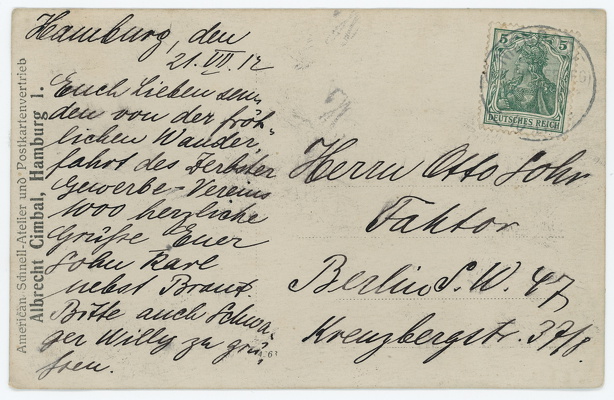 Hamburg, den
21. VII. 12
Euch Lieben sen-
den von der fröh-
lichen Wander-
fahrt des Zerbster
Gewerbe-Vereins
1000 herzliche
Grüße Euer
Sohn Karl
nebst Braut.
Bitte auch Schwa-
ger Willy zu grü-
ßen.
American Schnell-Atelier und Postkartenvertrieb
Albrecht Cimbal, Hamburg 1.
5 5
DEUTSCHES REICH
Herrn Otto Sohr
Faktor
Berlin S.W. 47
Kreuzbergstr.